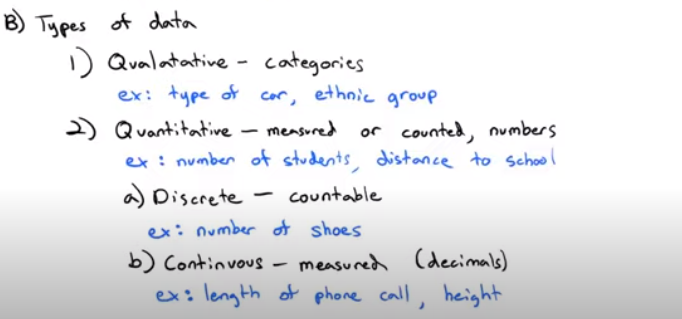 B) Types of data
1) Qualatative - categories
ex: type of car, ethnic group
2) Quantitative - measured or counted, numbers
ex: number of students, distance to school
a) Discrete - countable
ex: number of shoes
b) Continuous - measured (decimals)
ex: length of phone call, height